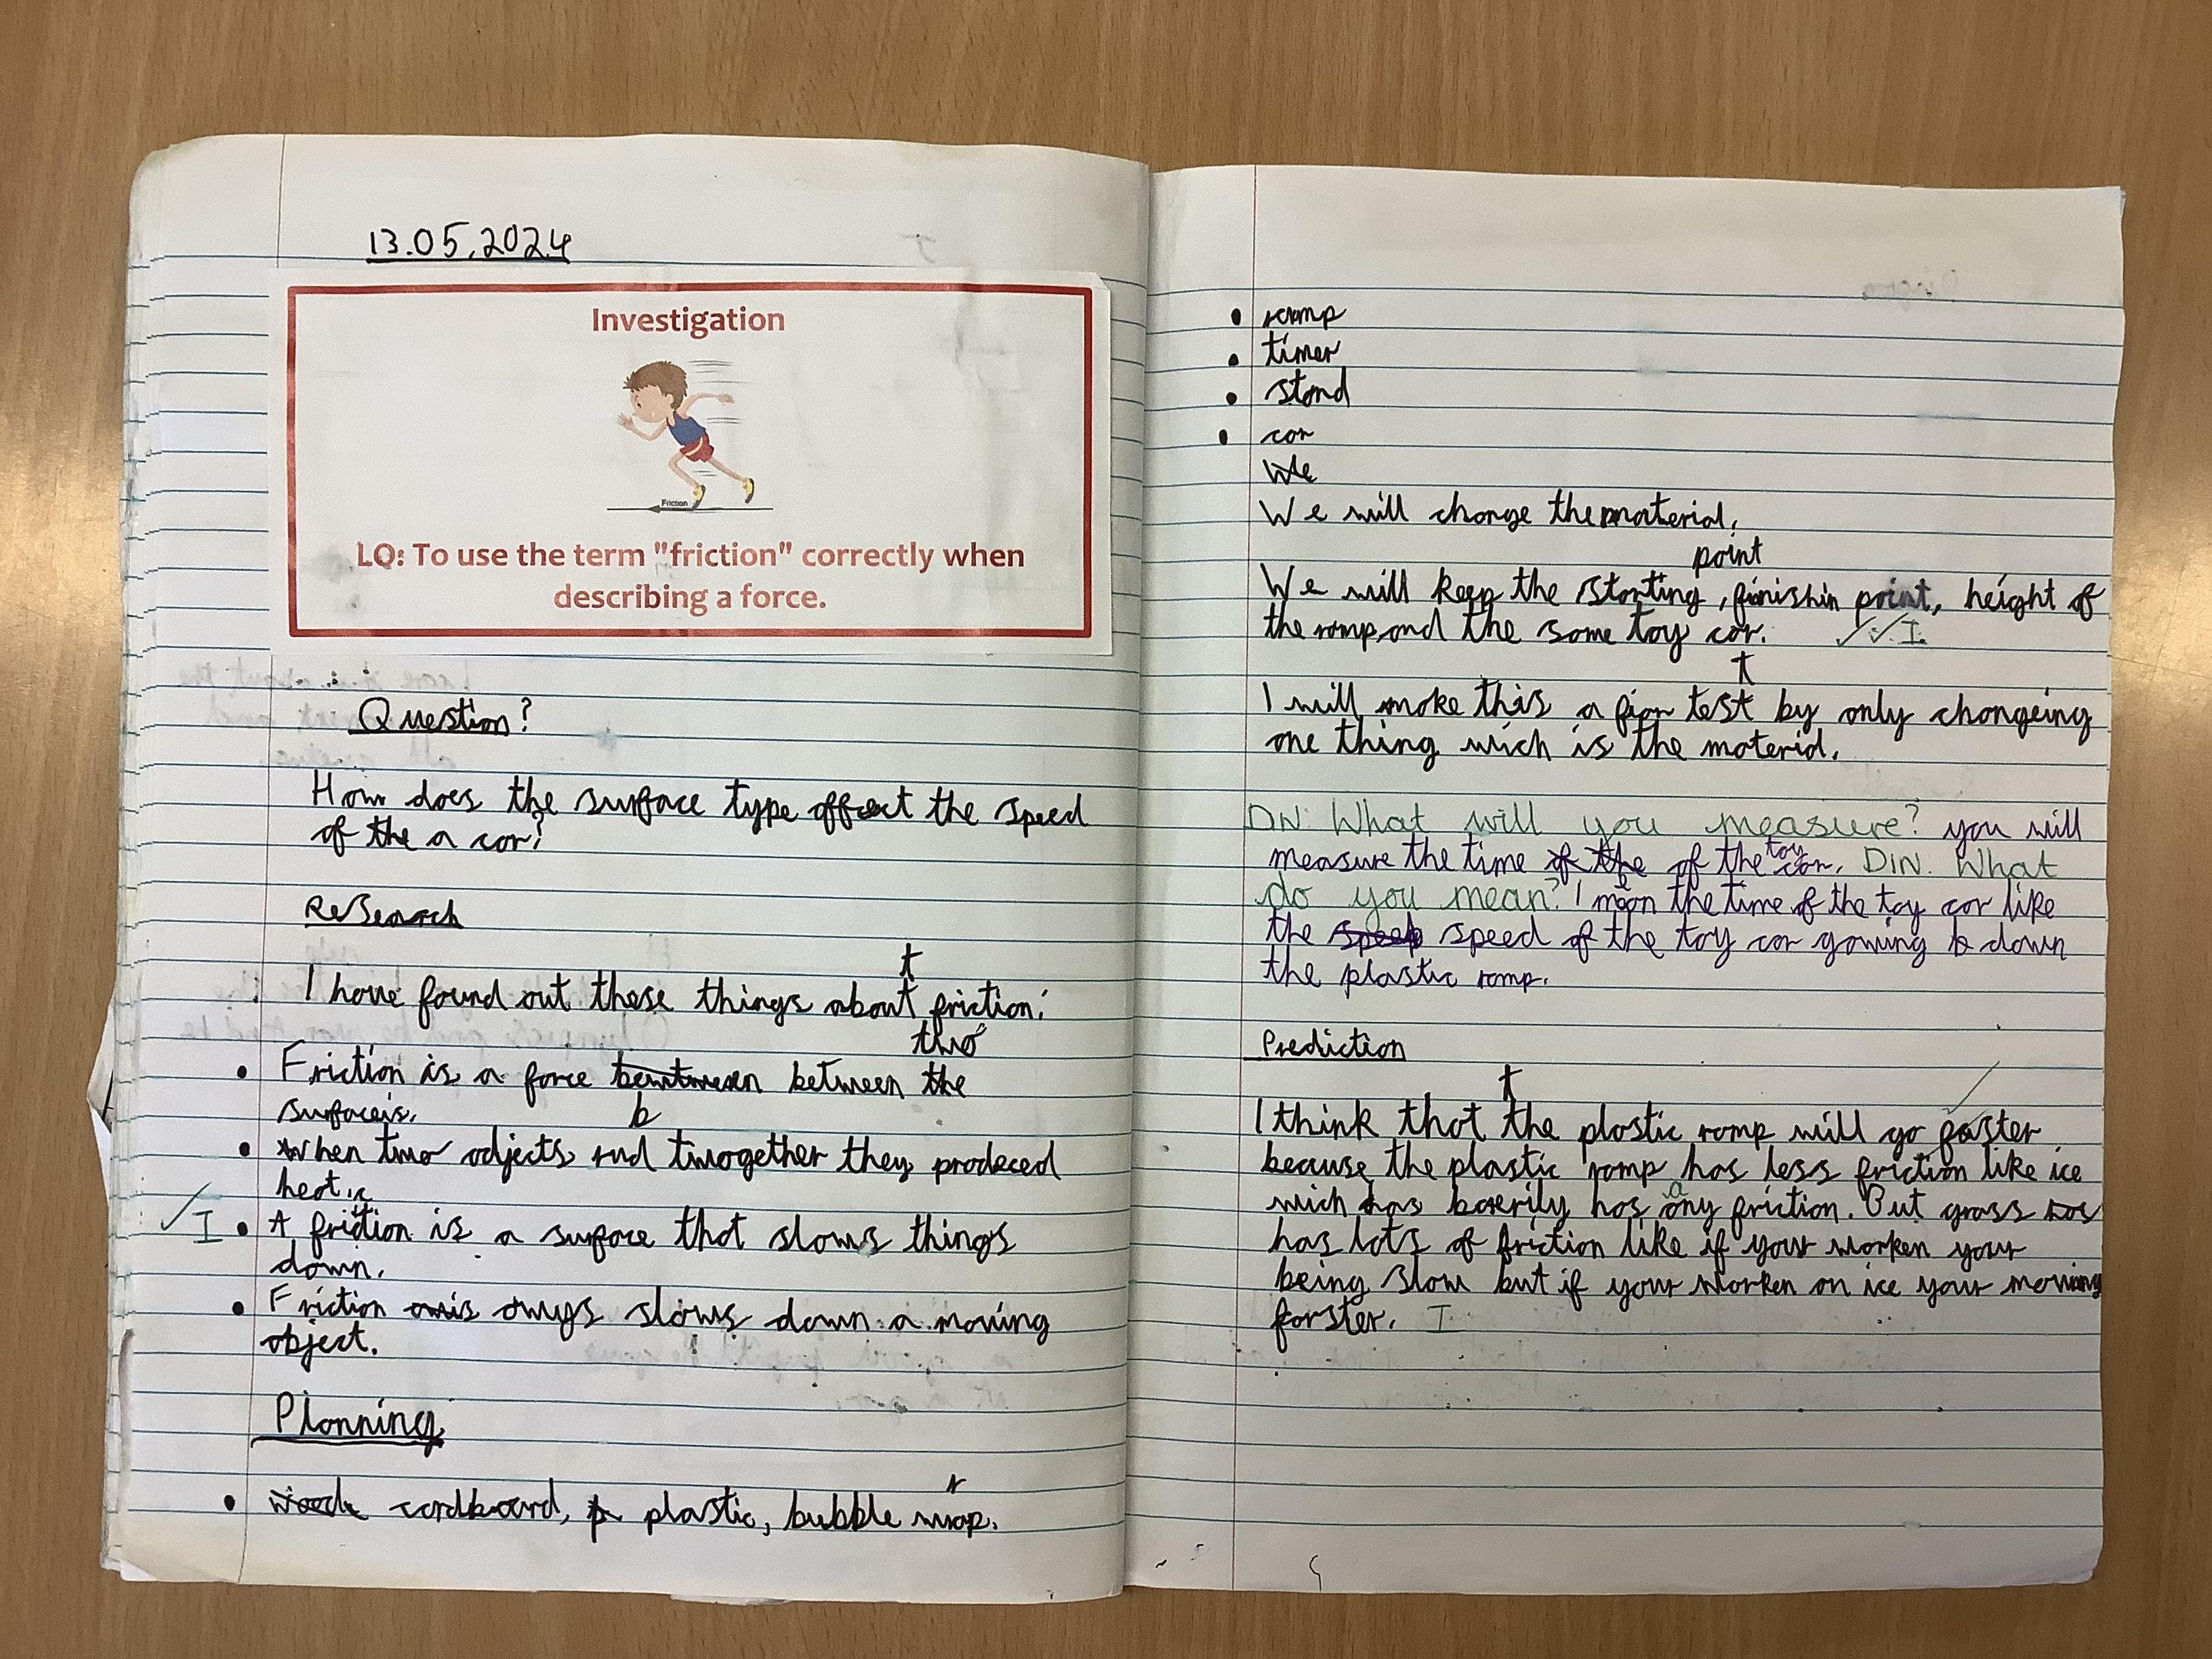 13.05.2024
Investigation
Friction
LQ: To use the term "friction" correctly when
describing a force.
Question?
How does the surface type affect the speed
of the a car?
Research
t
I have found out these things about friction:
two
Friction is a force between between the
surfaceis.
b
• When two odjects rud twogether they prodeced
heat.
I • A friction is a surface that slows things
down.
• Friction omys slows down a moving
object.
Planning
r
• wood cardboard, p plastic, bubble wrap.
• ramp
• timer
• stand
• car
We
We will change the material.
point
We will keep the starting, finishin point, height of
the ramp and the same toy car. I
t
I will make this a fiar test by only changeing
one thing wich is the material.
DN: What will you measure? you will
toy
measure the time of the of the car. DN. What
do you mean? I mean the time of the toy car like
the speep speed of the toy car gowing b down
the plastic ramp.
Prediction
t
I think that the plastic ramp will go faster
because the plastic ramp has less friction like ice
wich has barily has any friction. But grass has
has lots of friction like if your worken your
being slow but if your worken on ice your moving
farster. I